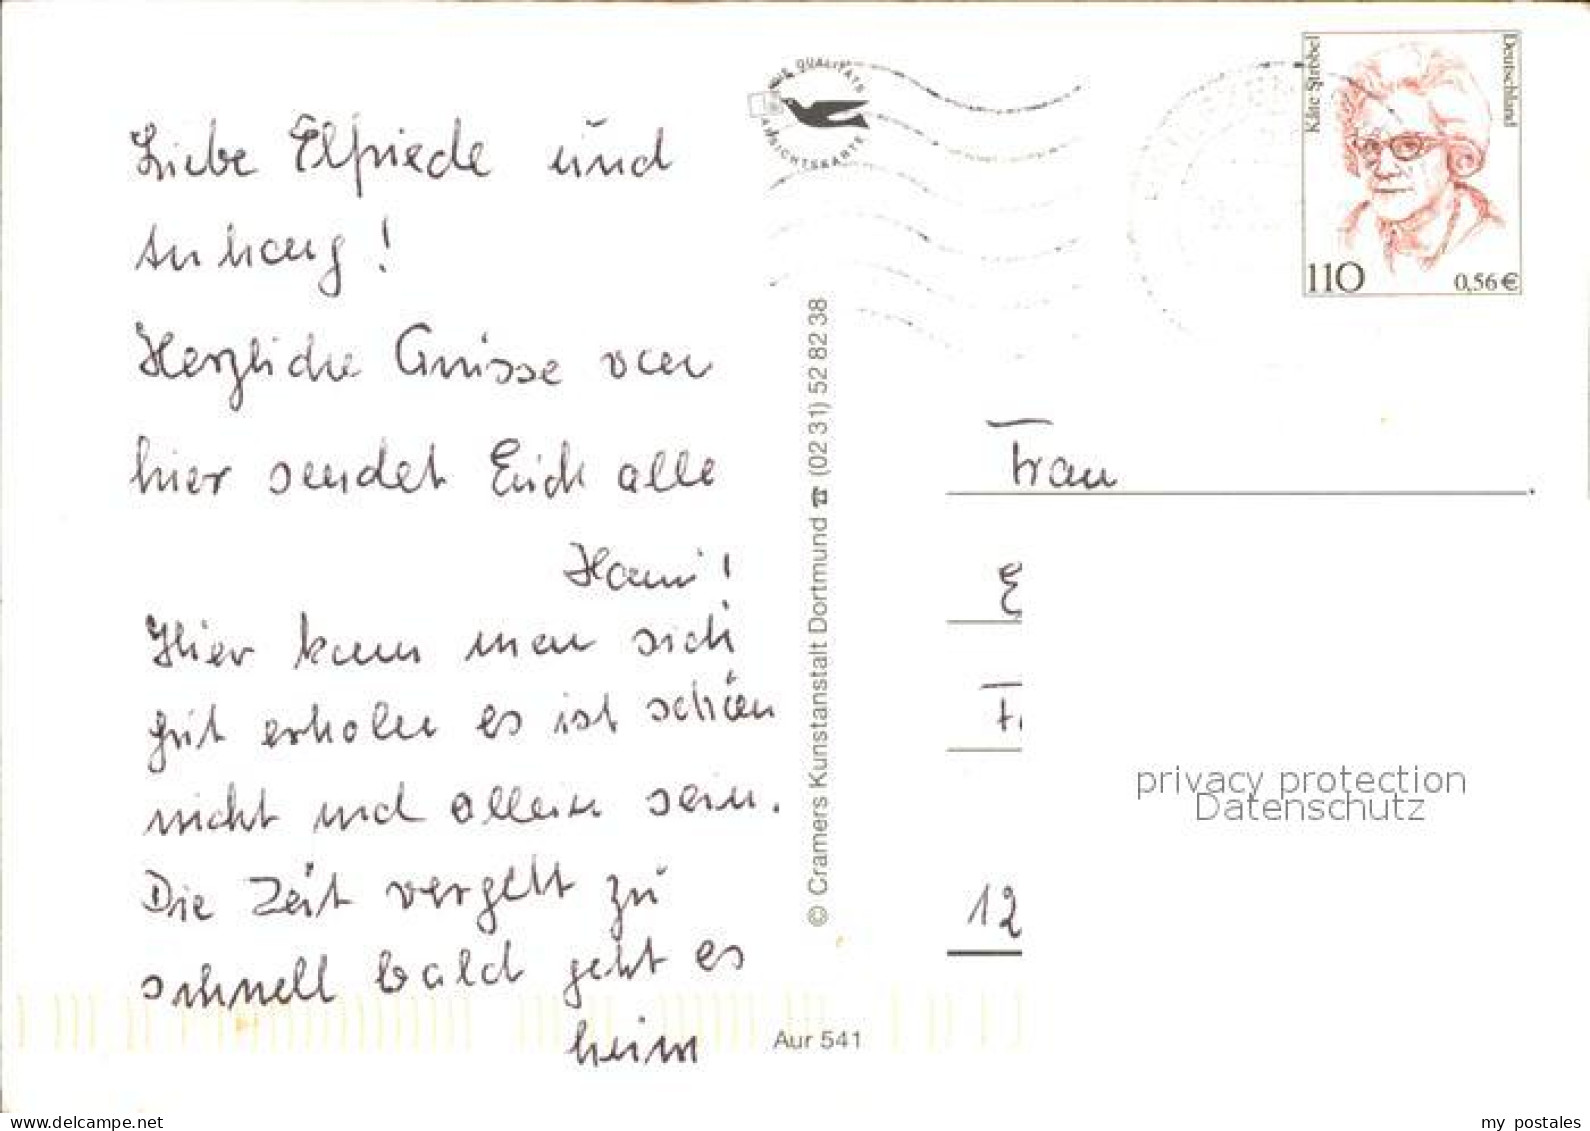 Liebe Elfriede und
Anhang!
Herzliche Grüsse von
hier sendet Euch alle
Hanni!
Hier kann man sich
gut erholen es ist schön
nicht und allein sein.
Die Zeit vergeht zu
schnell bald geht es
heim
© Cramers Kunstanstalt Dortmund ☎ (02 31) 52 82 38
Aur 541
QUALITÄTS
ANSICHTSKARTE
Käte Strobel
Deutschland
110
0,56 €
Frau
E
F
12
privacy protection
Datenschutz
www.delcampe.net
my_postales